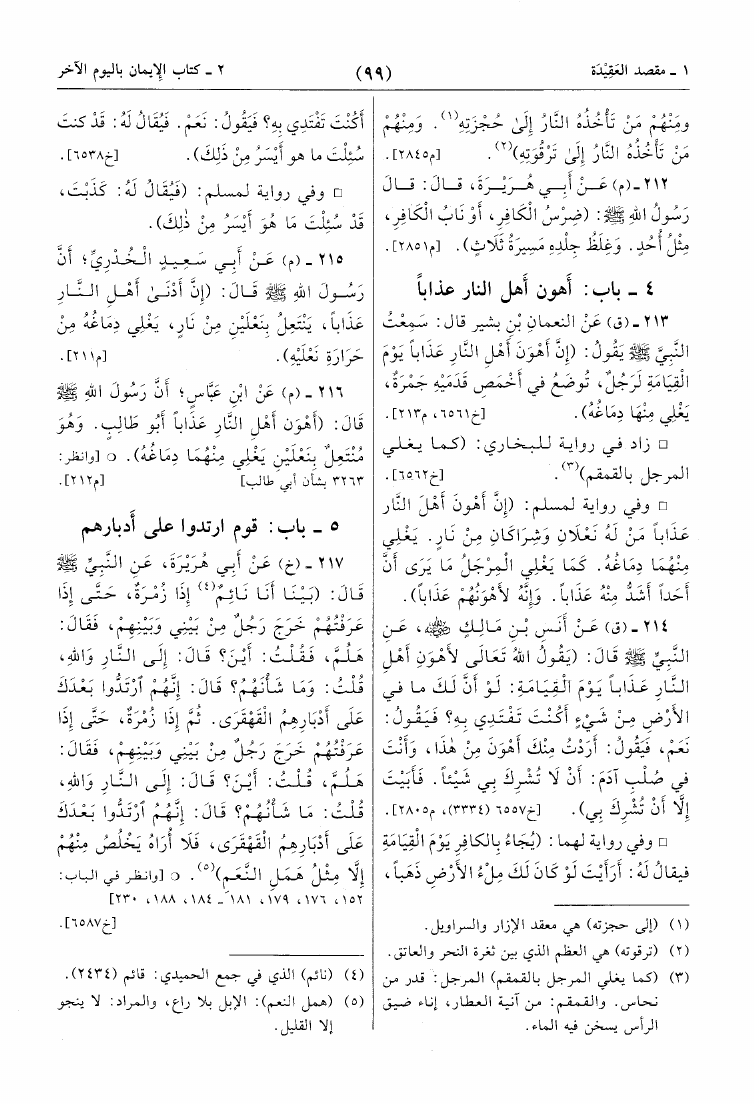 ١ ـ مقصد العَقِيْدَة
(٩٩)
٢ ـ كتاب الإيمان باليوم الآخر
ومِنْهُمْ مَنْ تَأْخُذُهُ النَّارُ إِلَىٰ حُجْزَتِهِ(١). وَمِنْهُمْ
مَنْ تَأْخُذُهُ النَّارُ إِلَىٰ تَرْقُوَتِهِ)(٢). [م٢٨٤٥].
٢١٢ـ (م) عَـنْ أَبِـي هُـرَيْـرَةَ، قـالَ: قـالَ
رَسُولُ اللهِ ﷺ: (ضِرْسُ الْكَافِرِ، أَوْ نَابُ الْكَافِرِ،
مِثْلُ أُحُدٍ. وَغِلَظُ جِلْدِهِ مَسِيرَةُ ثَلَاثٍ). [م٢٨٥١].
٤ ـ باب: أهون أهل النار عذاباً
٢١٣ـ (ق) عَنْ النعمانِ بْنِ بشير قال: سَمِعْتُ
النَّبِيَّ ﷺ يَقُولُ: (إِنَّ أَهْوَنَ أَهْلِ النَّارِ عَذَاباً يَوْمَ
الْقِيَامَةِ لَرَجُلٌ، تُوضَعُ في أَخْمَصِ قَدَمَيْهِ جَمْرَةٌ،
يَغْلِي مِنْهَا دِمَاغُهُ). [خ٦٥٦١، م٢١٣].
□ زاد في رواية للبخاري: (كـمـا يـغـلـي
المرجل بالقمقم)(٣). [خ٦٥٦٢].
□ وفي رواية لمسلم: (إِنَّ أَهْوَنَ أَهْلَ النَّار
عَذَاباً مَنْ لَهُ نَعْلَانِ وَشِرَاكَانِ مِنْ نَارٍ. يَغْلِي
مِنْهُمَا دِمَاغُهُ. كَمَا يَغْلِي الْمِرْجَلُ مَا يَرَى أَنَّ
أَحَداً أَشَدُّ مِنْهُ عَذَاباً. وَإِنَّهُ لأَهْوَنُهُمْ عَذَاباً).
٢١٤ـ (ق) عَـنْ أَنَـسِ بْـنِ مَـالِـكٍ رضي الله عنه، عَـنِ
النَّبِيِّ ﷺ قَالَ: (يَقُولُ اللهُ تَعَالَى لأَهْوَنِ أَهْلِ
النَّارِ عَذَاباً يَوْمَ الْقِيَامَةِ: لَوْ أَنَّ لَكَ ما في
الأَرْضِ مِنْ شَيْءٍ أَكُنْتَ تَفْتَدِي بِهِ؟ فَيَقُولُ:
نَعَمْ، فَيَقُولُ: أَرَدْتُ مِنْكَ أَهْوَنَ مِنْ هٰذَا، وَأَنْتَ
في صُلْبِ آدَمَ: أَنْ لَا تُشْرِكَ بِي شَيْئاً. فَأَبَيْتَ
إِلَّا أَنْ تُشْرِكَ بِي). [خ٦٥٥٧ (٣٣٣٤)، م٢٨٠٥].
□ وفي رواية لهما: (يُجَاءُ بِالكافِرِ يَوْمَ الْقِيَامَةِ
فيقالُ لَهُ: أَرَأَيْتَ لَوْ كَانَ لَكَ مِلْءُ الأَرْضِ ذَهَباً،
(١) (إلى حجزته) هي معقد الإزار والسراويل.
(٢) (ترقوته) هي العظم الذي بين ثغرة النحر والعاتق.
(٣) (كما يغلي المرجل بالقمقم) المرجل: قدر من
نحاس. والقمقم: من آنية العطار، إناء ضيق
الرأس يسخن فيه الماء.
أَكُنْتَ تَفْتَدِي بِهِ؟ فَيَقُولُ: نَعَمْ. فَيُقَالُ لَهُ: قَدْ كنتَ
سُئِلْتَ ما هو أَيْسَرُ مِنْ ذَلِكَ). [خ٦٥٣٨].
□ وفي رواية لمسلم: (فَيُقَالُ لَهُ: كَذَبْتَ،
قَدْ سُئِلْتَ مَا هُوَ أَيْسَرُ مِنْ ذٰلِكَ).
٢١٥ ـ (م) عَـنْ أَبِي سَـعِـيـدٍ الْـخُـدْرِيِّ؛ أَنَّ
رَسُـولَ اللهِ ﷺ قَـالَ: (إِنَّ أَدْنَـىٰ أَهْـلِ الـنَّـارِ
عَذَاباً، يَنْتَعِلُ بِنَعْلَيْنِ مِنْ نَارٍ، يَغْلِي دِمَاغُهُ مِنْ
حَرَارَةِ نَعْلَيْهِ). [م٢١١].
٢١٦ ـ (م) عَنْ ابْنِ عَبَّاسٍ؛ أَنَّ رَسُولَ اللهِ ﷺ
قَالَ: (أَهْوَنُ أَهْلِ النَّارِ عَذَاباً أَبُو طَالِبٍ. وَهُوَ
مُنْتَعِلٌ بِنَعْلَيْنِ يَغْلِي مِنْهُمَا دِمَاغُهُ). ○ [وانظر:
٣٢٦٣ بشأن أبي طالب] [م٢١٢].
٥ ـ باب: قوم ارتدوا على أدبارهم
٢١٧ ـ (خ) عَنْ أَبِي هُرَيْرَةَ، عَنِ النَّبِيِّ ﷺ
قَالَ: (بَيْنَا أَنَا نَائِمٌ(٤) إِذَا زُمْرَةٌ، حَتَّى إِذَا
عَرَفْتُهُمْ خَرَجَ رَجُلٌ مِنْ بَيْنِي وَبَيْنِهِمْ، فَقَالَ:
هَلُمَّ، فَقُلْتُ: أَيْنَ؟ قَالَ: إِلَى النَّارِ وَاللهِ،
قُلْتُ: وَمَا شَأْنُهُمْ؟ قَالَ: إِنَّهُمُ ٱرْتَدُّوا بَعْدَكَ
عَلَى أَدْبَارِهِمُ الْقَهْقَرَى. ثُمَّ إِذَا زُمْرَةٌ، حَتَّى إِذَا
عَرَفْتُهُمْ خَرَجَ رَجُلٌ مِنْ بَيْنِي وَبَيْنِهِمْ، فَقَالَ:
هَلُمَّ، قُلْتُ: أَيْنَ؟ قَالَ: إِلَى النَّارِ وَاللهِ،
قُلْتُ: مَا شَأْنُهُمْ؟ قَالَ: إِنَّهُمُ ٱرْتَدُّوا بَعْدَكَ
عَلَى أَدْبَارِهِمُ الْقَهْقَرَى، فَلَا أُرَاهُ يَخْلُصُ مِنْهُمْ
إِلَّا مِثْلُ هَمَلِ النَّعَمِ)(٥). ○ [وانظر في الباب:
١٥٢، ١٧٦، ١٧٩، ١٨١ـ ١٨٤، ١٨٨، ٢٣٠]
[خ٦٥٨٧].
(٤) (نائم) الذي في جمع الحميدي: قائم (٢٤٣٤).
(٥) (همل النعم): الإبل بلا راع، والمراد: لا ينجو
إلا القليل.